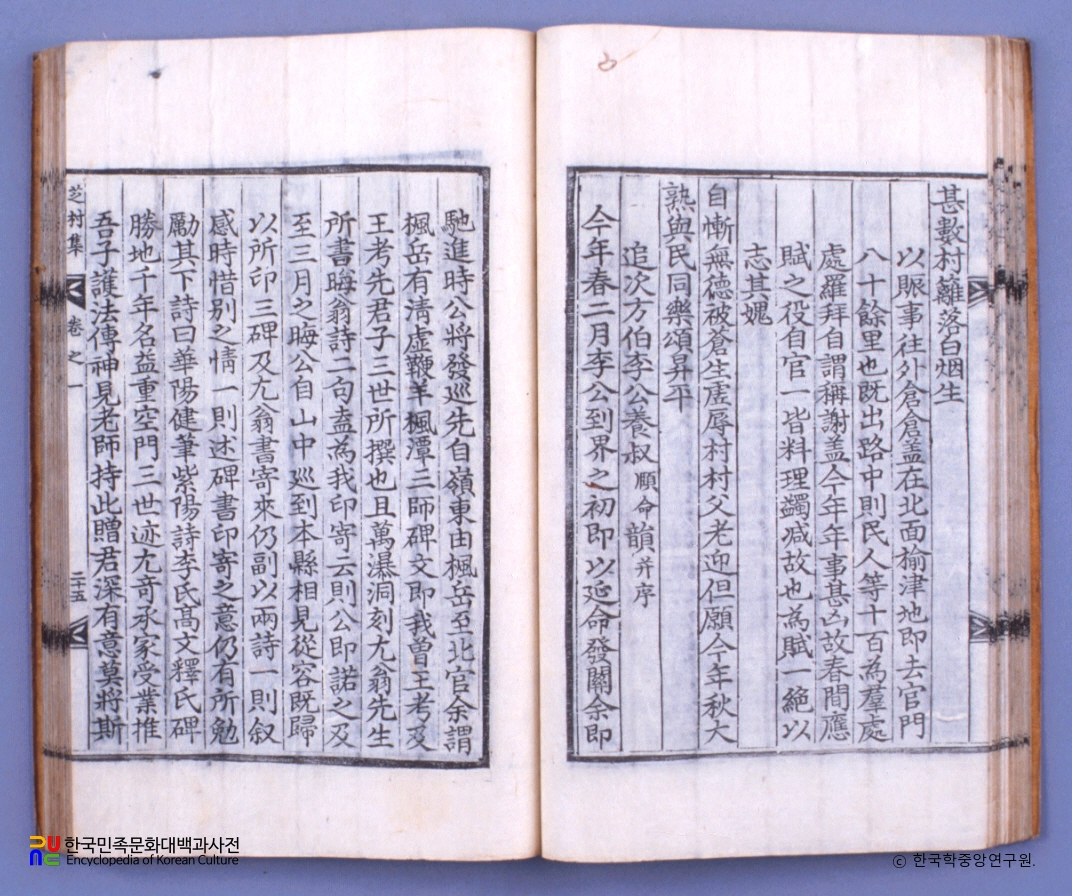 甚數村籬落白烟生
以賑事往外倉倉蓋在北面榆津地即去官門
八十餘里也既出路中則民人等十百為羣處
處羅拜自謂稱謝盖今年年事甚凶故春間應
賦之役自官一皆料理蠲减故也為賦一絶以
志其媿
自慚無德被蒼生虛辱村村父老迎但願今年秋大
熟與民同樂頌昇平
追次方伯李公養叔順命韻并序
今年春二月李公到界之初即以延命發關余即
馳進時公將發巡先自嶺東由楓岳至北官余謂
楓岳有淸虛鞭羊楓潭三師碑文即我曽王考及
王考先君子三世所撰也且萬瀑洞刻尤翁先生
所書晦翁詩二句盍為我印寄云則公即諾之及
至三月之晦公自山中巡到本縣相見從容既歸
以所印三碑及尤翁書寄來仍副以兩詩一則叙
感時惜别之情一則述碑書印寄之意仍有所勉
勵其下詩曰華陽健筆紫陽詩李氏高文釋氏碑
勝地千年名益重空門三世迹尤奇承家受業推
吾子護法傳神見老師持此贈君深有意莫將斯
芝村集 卷之一 二十五
한국민족문화대백과사전
Encyclopedia of Korean Culture
© 한국학중앙연구원.